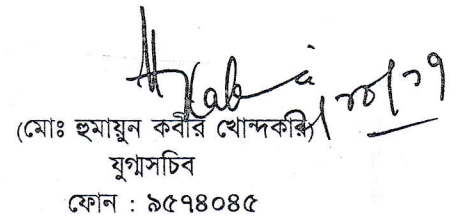 (মোঃ হুমায়ুন কবীর খোন্দকার)
যুগ্মসচিব
ফোন : ৯৫৭৪০৪৫